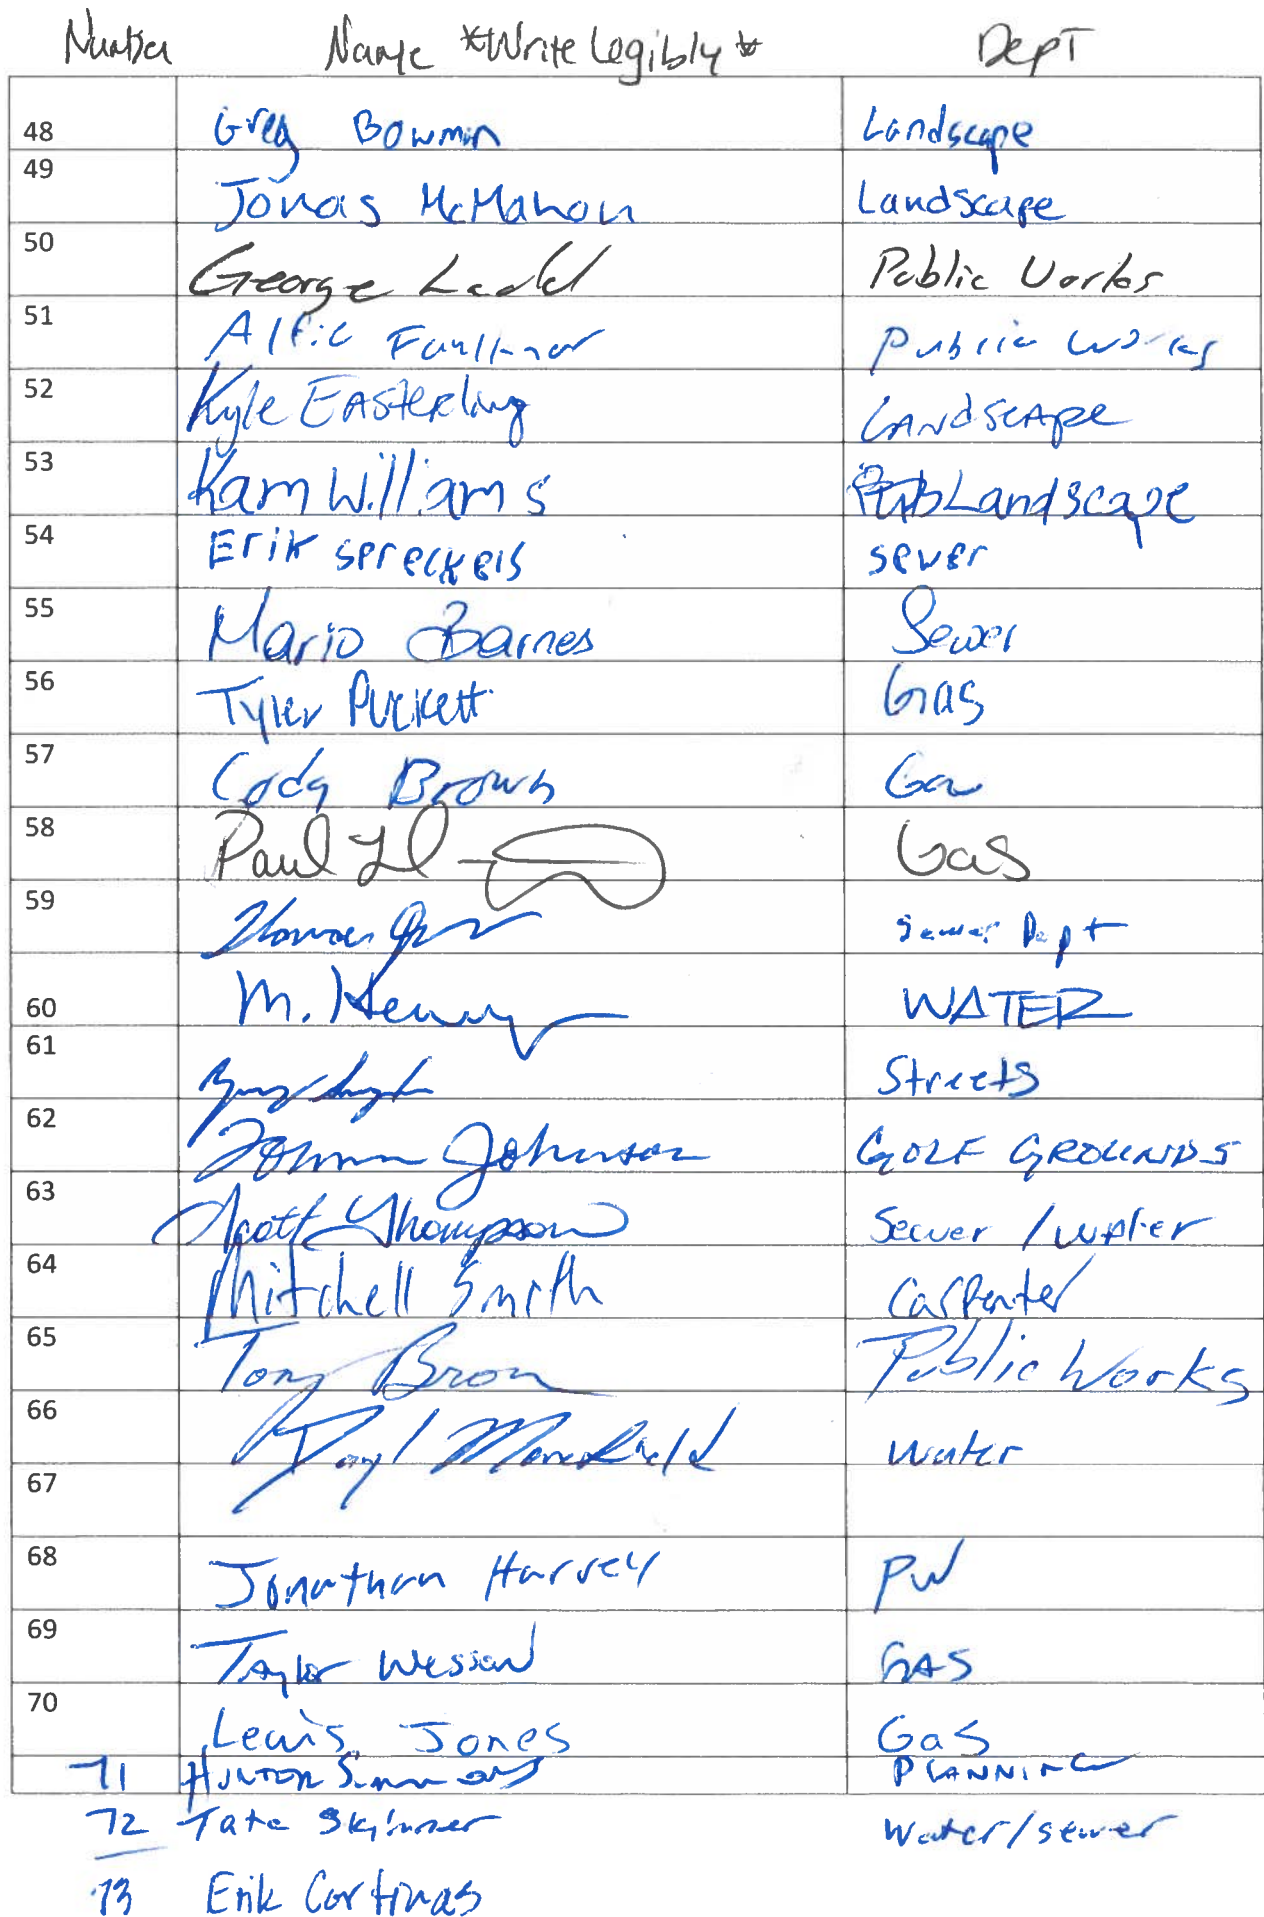 Number Name *Write Legibly* Dept
48 Greg Bowman Landscape
49 Jonas McMahon Landscape
50 George Ladd Public Works
51 Alfie Faulkner Public Works
52 Kyle Easterling Landscape
53 Kam Williams Landscape
54 Erik Spreckels sewer
55 Mario Barnes Sewer
56 Tyler Puckett Gas
57 Cody Brown Gas
58 Paul Gas
59 Sewer Dept
60 M. Henry WATER
61 Streets
62 Johnson GOLF GROUNDS
63 Scott Thompson Sewer / water
64 Mitchell Smith Carpenter
65 Tony Brown Public Works
66 Water
67
68 Jonathan Harvey PW
69 Taylor Wesson GAS
70 Lewis Jones Gas
71 Hunter Simmons PLANNING
72 Tate Skinner Water/sewer
73 Erik Cortinas